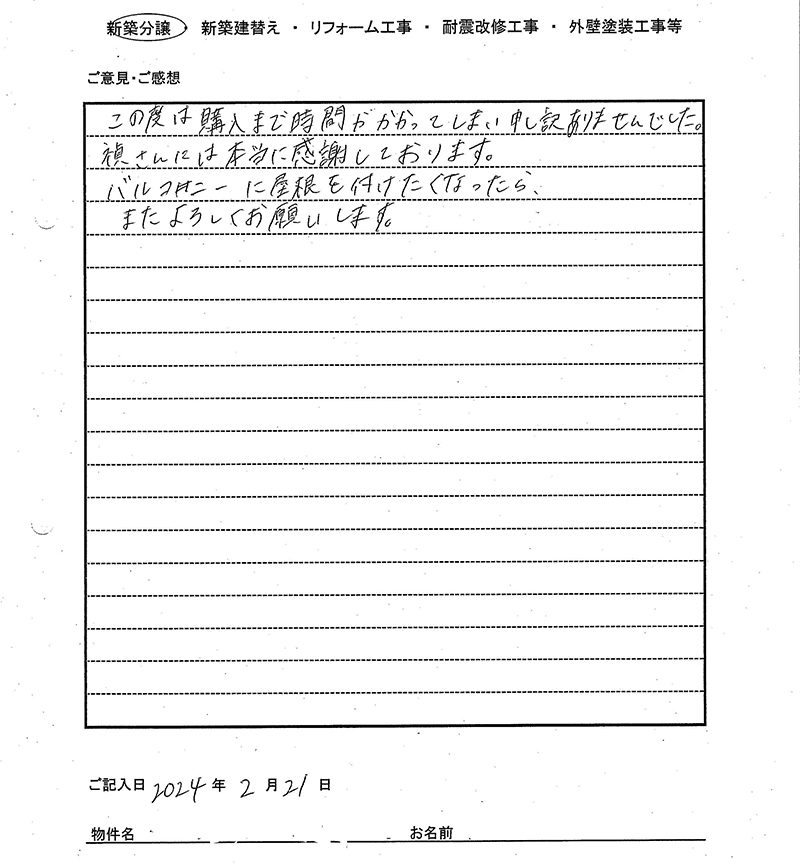 新築分譲 新築建替え ・ リフォーム工事 ・ 耐震改修工事 ・ 外壁塗装工事等
ご意見・ご感想
この度は購入まで時間がかかってしまい申し訳ありませんでした。
禎さんには本当に感謝しております。
バルコニーに屋根を付けたくなったら、
またよろしくお願いします。
ご記入日 2024 年 2 月 21 日
物件名 お名前